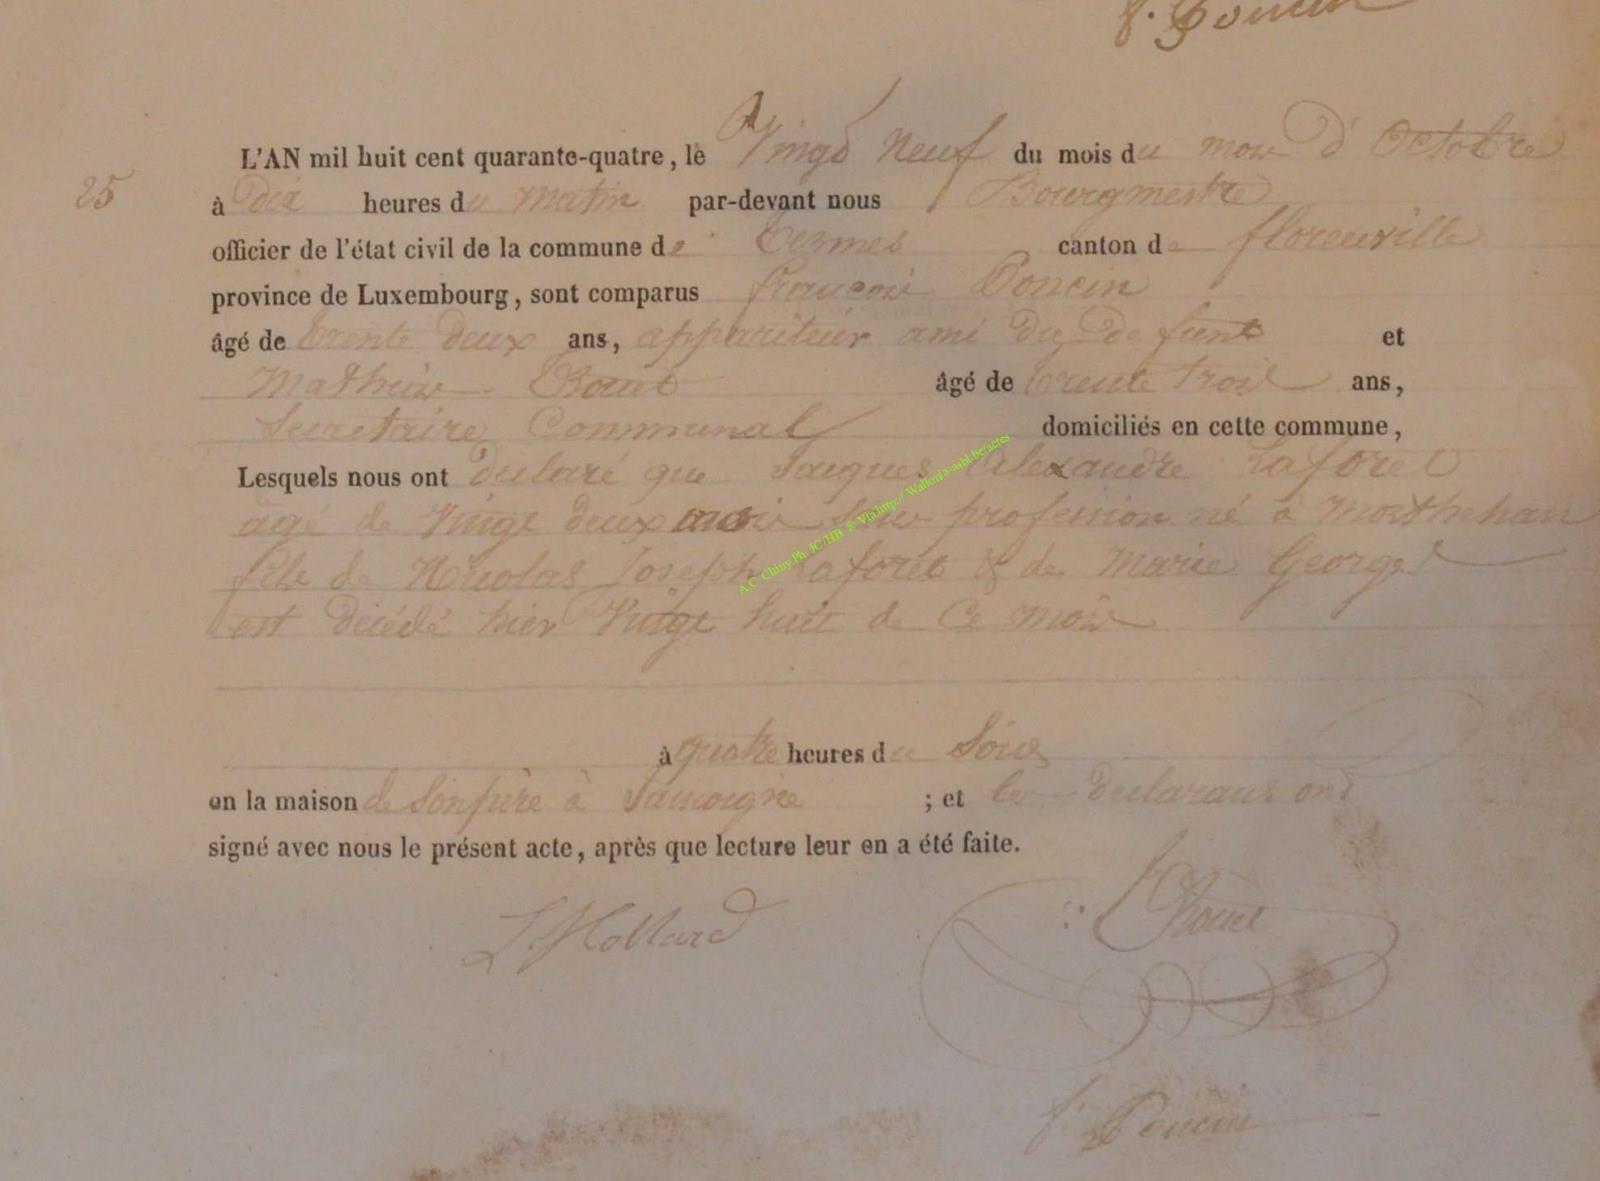 f. Poncin
25
L'AN mil huit cent quarante-quatre, le Vingt Neuf du mois du mois d'Octobre
à dix heures du matin par-devant nous Bourgmestre
officier de l'état civil de la commune de Termes canton de florenville
province de Luxembourg, sont comparus françois Poncin
âgé de trente deux ans, appariteur ami du defunt et
Mathieu âgé de trente trois ans,
Secretaire Communal domiciliés en cette commune,
Lesquels nous ont declaré que Jacques Alexandre Laforet
agé de Vingt deux mois sans profession né à Morthehan
fils de Nicolas Joseph Laforet & de Marie George
est décédé hier Vingt huit de Ce mois
à quatre heures du Soir
en la maison de Son père à Jamoigne ; et les declarans ont
signé avec nous le présent acte, après que lecture leur en a été faite.
A.C Chiny Ph JC/HB ® Via http// Wallonia-asbl.be/actes
Hollard
f. Poncin